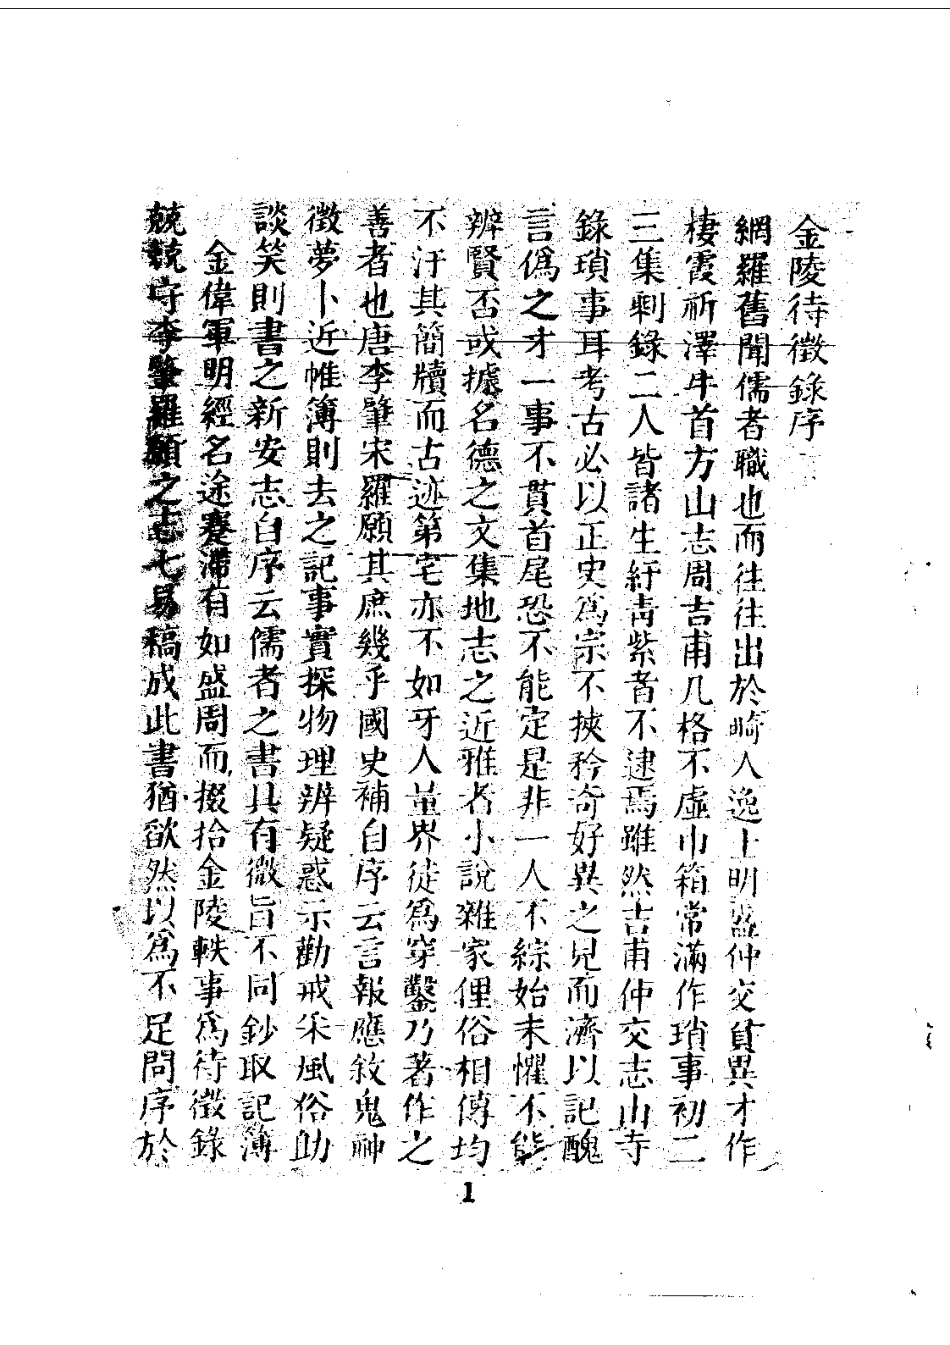 金陵待徵錄序
網羅舊聞儒者職也而往往出於畸人逸士明盛仲交負異才作
棲霞祈澤牛首方山志周吉甫几格不虛巾箱常滿作瑣事初二
三集剩錄二人皆諸生紆青紫者不逮焉雖然吉甫仲交志山寺
錄瑣事耳考古必以正史爲宗不挾矜奇好異之見而濟以記醜
言僞之才一事不貫首尾恐不能定是非一人不綜始末懼不能
辨賢否或據名德之文集地志之近雅者小說雜家俚俗相傳均
不汙其簡牘而古迹第宅亦不如牙人量界徒爲穿鑿乃著作之
善者也唐李肇宋羅願其庶幾乎國史補自序云言報應敘鬼神
徵夢卜近帷簿則去之記事實探物理辨疑惑示勸戒采風俗助
談笑則書之新安志自序云儒者之書具有微旨不同鈔取記簿
金偉軍明經名途蹇滯有如盛周而掇拾金陵軼事爲待徵錄
兢兢守李肇羅願之志七易稿成此書猶欿然以爲不足問序於
1